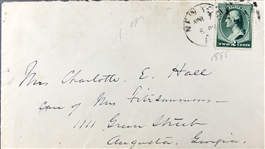 1 M
NEW YO
APR
TWO CENTS
1888
Mrs Charlotte E. Hall
Care of Mrs Fitzsimmons—
1111 Green Street
Augusta, Georgia.